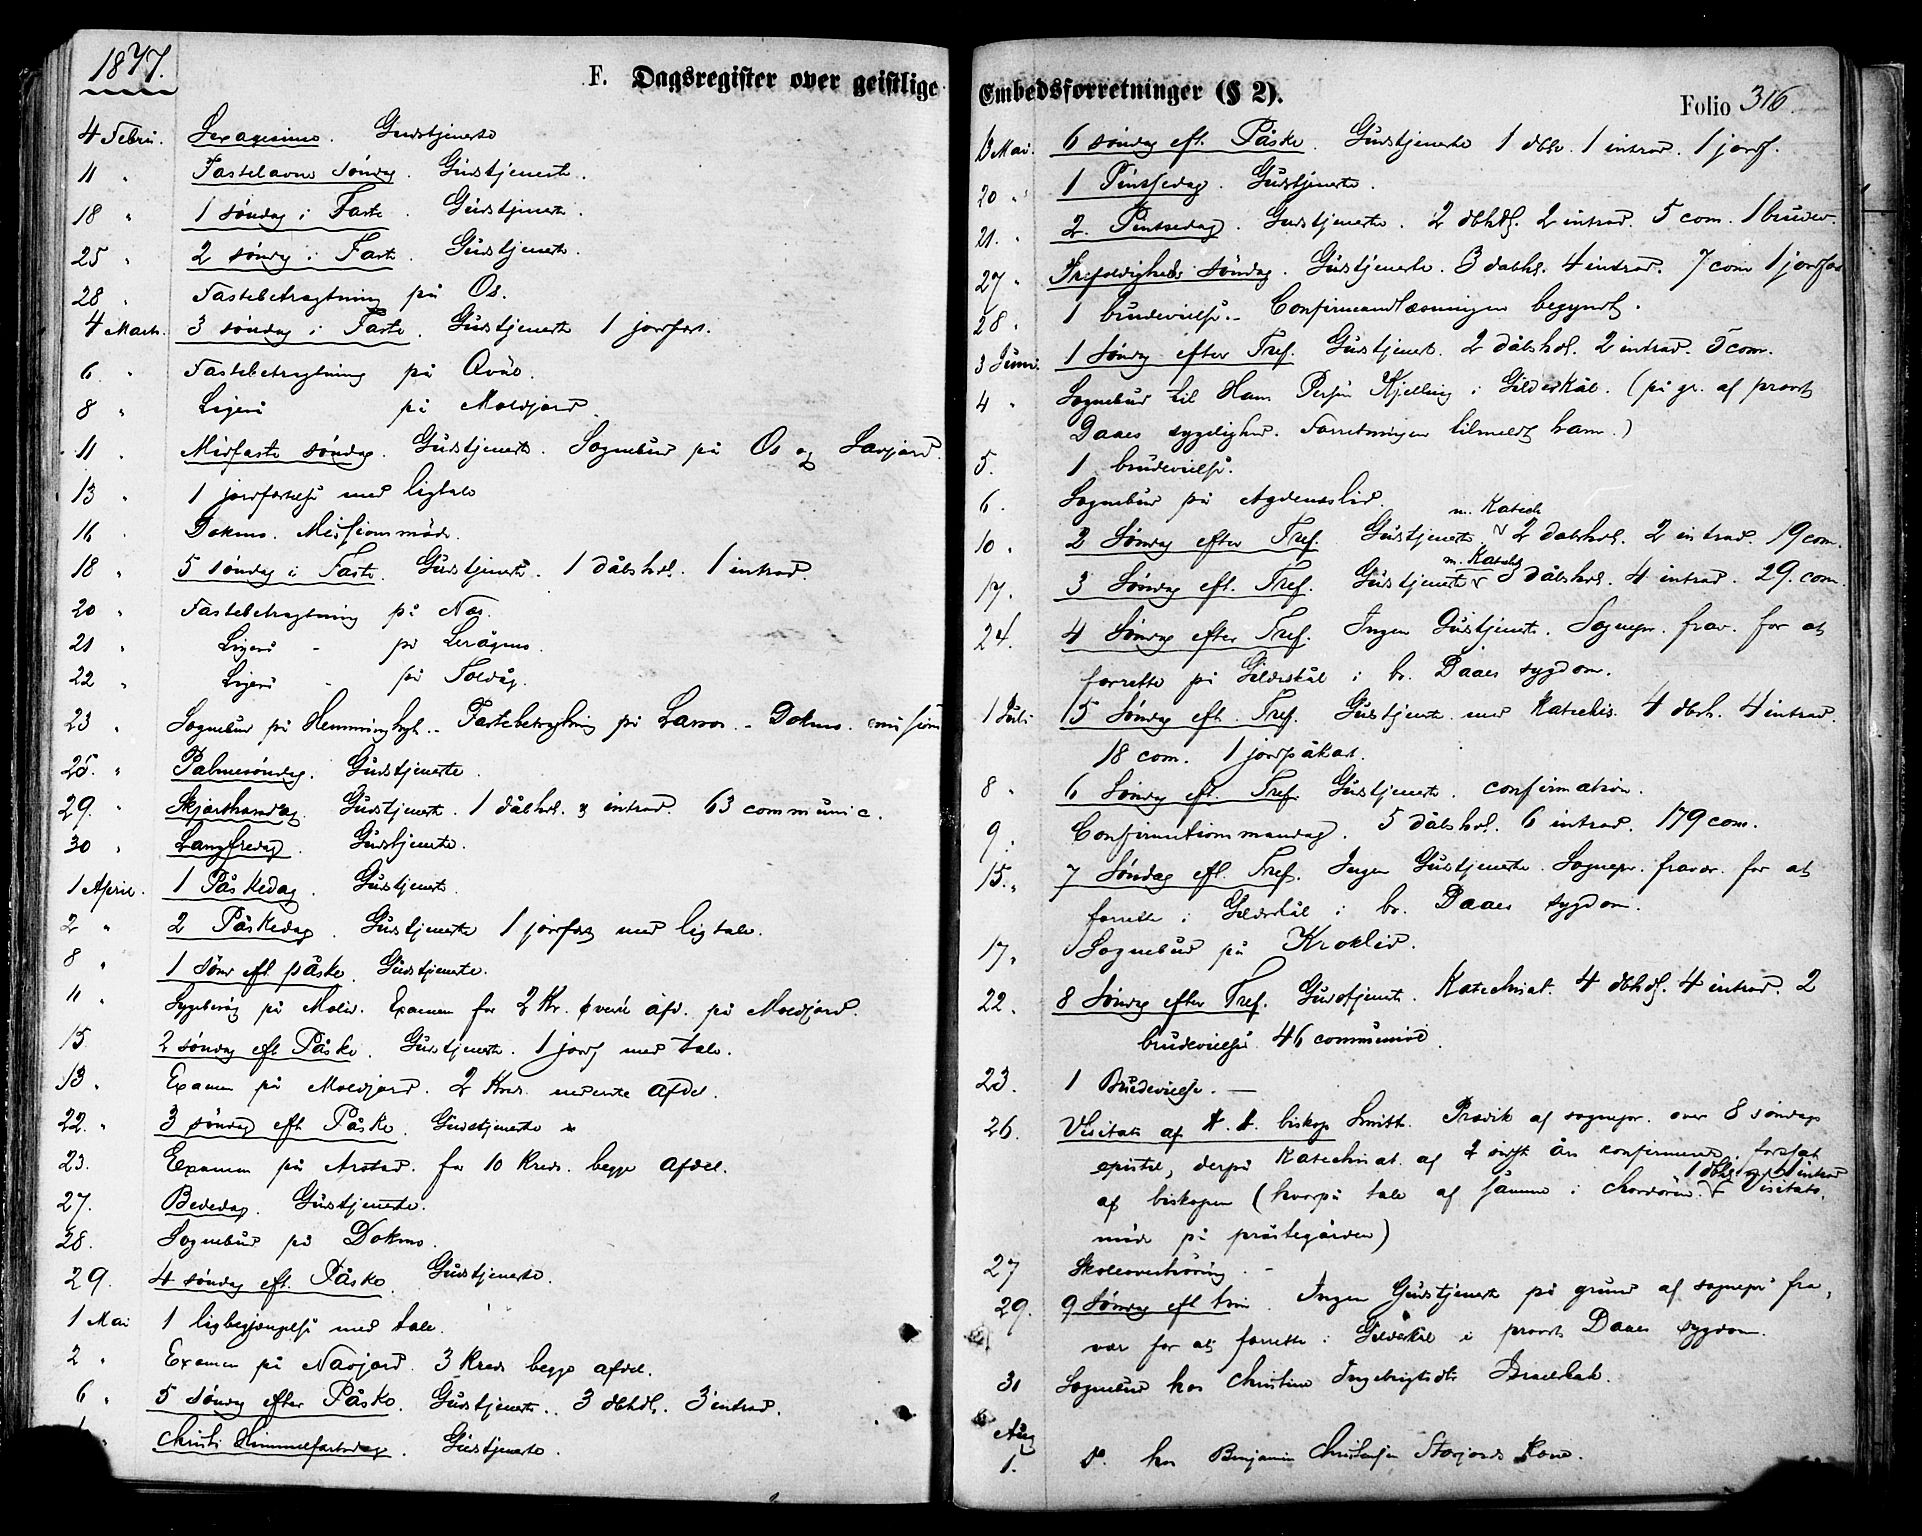 1877.
F. Dagsregister over geistlige
4 Febru. Sexagesima. Gudstjeneste
11 " Fastelavns søndag. Gudstjeneste.
18 " 1 søndag i Faste. Gudstjeneste.
25 " 2 søndag i Faste. Gudstjeneste.
28 " Fastebetragtning på Os.
4 Marts. 3 søndag i Faste. Gudstjeneste 1 jordfæst.
6 " Fastebetragtning på
8 " Ligeså på Moldjord
11 " Midfaste søndag. Gudstjeneste. Sognebud på Os og
13 " 1 jordfæstelse med ligtale
16 " Dokmo. Missionsmøde.
18 " 5 søndag i Faste. Gudstjeneste. 1 dåbshdl. 1 introd.
20 " Fastebetragtning på Nes.
21 " Ligeså - på
22 " Ligeså - på Soløåg.
23 " Sognebud på - Fastebetragtning på - Dokmo.
25. " Palmesøndag. Gudstjeneste
29. " Skjærthorsdag. Gudstjeneste. 1 dåbshdl. & introd. 63 communic.
30 " Langfredag. Gudstjeneste.
1 April. 1 Påskedag. Gudstjeneste.
2 " 2 Påskedag. Gudstjeneste 1 jordfæst med ligtale.
8 " 1 sønd eft påske. Gudstjeneste.
11 " på Examen for 2 Kr. øverste afd. på Moldjord.
15 2 søndag eft Påske. Gudstjeneste. 1 jordf med tale.
13 " Examen på Moldjord. 2 Kreds. nederste afdel.
22. " 3 søndag eft Påske. Gudstjeneste
23. Examen på for 10 Kreds. begge afdel.
27. Bededag. Gudstjeneste.
28. Sognebud på Dokmo.
29. 4 søndag eft. Påske. Gudstjeneste.
1 Mai 1 ligbegjængelse med tale.
2 " Examen på 3 Kreds begge afdel.
6 " 5 søndag efter Påske. Gudstjeneste. 3 dbhdl. 3 introd.
Christi Himmelfartsdag. Gudstjeneste.
Embedsforretninger (§ 2).
Folio 316
13 Mai. 6 søndag eft. Påske. Gudstjeneste 1 dbhdl. 1 introd. 1 jordf.
20 " 1 Pintsedag. Gudstjeneste.
21. " 2. Pintsedag. Gudstjeneste. 2 dbhdl. 2 introd. 5 com. 1 brudev.
27 " Trefoldigheds søndag. Gudstjeneste. 3 dåbhl. 4 introd. 7 com 1 jordfæs
28 " 1 brudevielse. - Confirmandlæsningen begyndt.
3 Juni. 1 søndag efter Tref. Gudstjenest. 2 dåbshdl. 2 introd. 5 com.
4 " Sognebud til Hans Kjelling i Gildeskål. (på gr. af provst
Daaes sygelighed. Forretningen tilmeldt ham.)
5. 1 brudevielse.
6. Sognebud på
m. Katech
10 " 2 Søndag efter Tref. Gudstjeneste 2 dåbshdl. 2 introd. 19 com.
m. Katech
17. 3 Søndag eft. Tref. Gudstjeneste 3 dåbshdl. 4 introd. 29. com.
24. 4 Søndag efter Tref. Ingen Gudstjeneste. Sognepr. frav. for at
forrette på Gildeskål i br. Daaes sygdom.
1 Juli 5 Søndag eft. Tref. Gudstjeneste med Katechis. 4 dbh. 4 introd.
18 com. 1 jordpåkast.
8 " 6 Søndag eft. Tref. Gudstjeneste. confirmation.
9 " Confirmationsmandag. 5 dåbshdl. 6 introd. 179 com.
15. " 7 Søndag eft. Tref. Ingen Gudstjeneste. Sognepr. fravær. for at
forrette i Gildeskål i br. Daaes sygdom.
17 " Sognebud på Kroklid.
22. 8 Søndag efter Tref. Gudstjeneste. Katechisat. 4 dbhdl. 4 introd. 2
brudevielse 46 communic.
23. 1 Brudevielse. -
26. Visitats af biskop Smitt. Prædik af sognepr. over 8 søndags
epistel, derpå Katechisat. af 2 sidste års konfirmerede, fortsat
1 dbhl og 1 introd
af biskopen (hvorpå tale af samme i chordøren. Visitats.
møde på præstegården)
27 Skoleoverhøring. -
29. 9 Søndag eft trin. Ingen Gudstjeneste på grund af sognepr fra,
vær for at forrette i Gildeskål i provst Daaes sygdom.
31 Sognebud hos Christine Ingebrigtsdtr
Aug
1. hos Benjamin Christensen Storjords Kone.